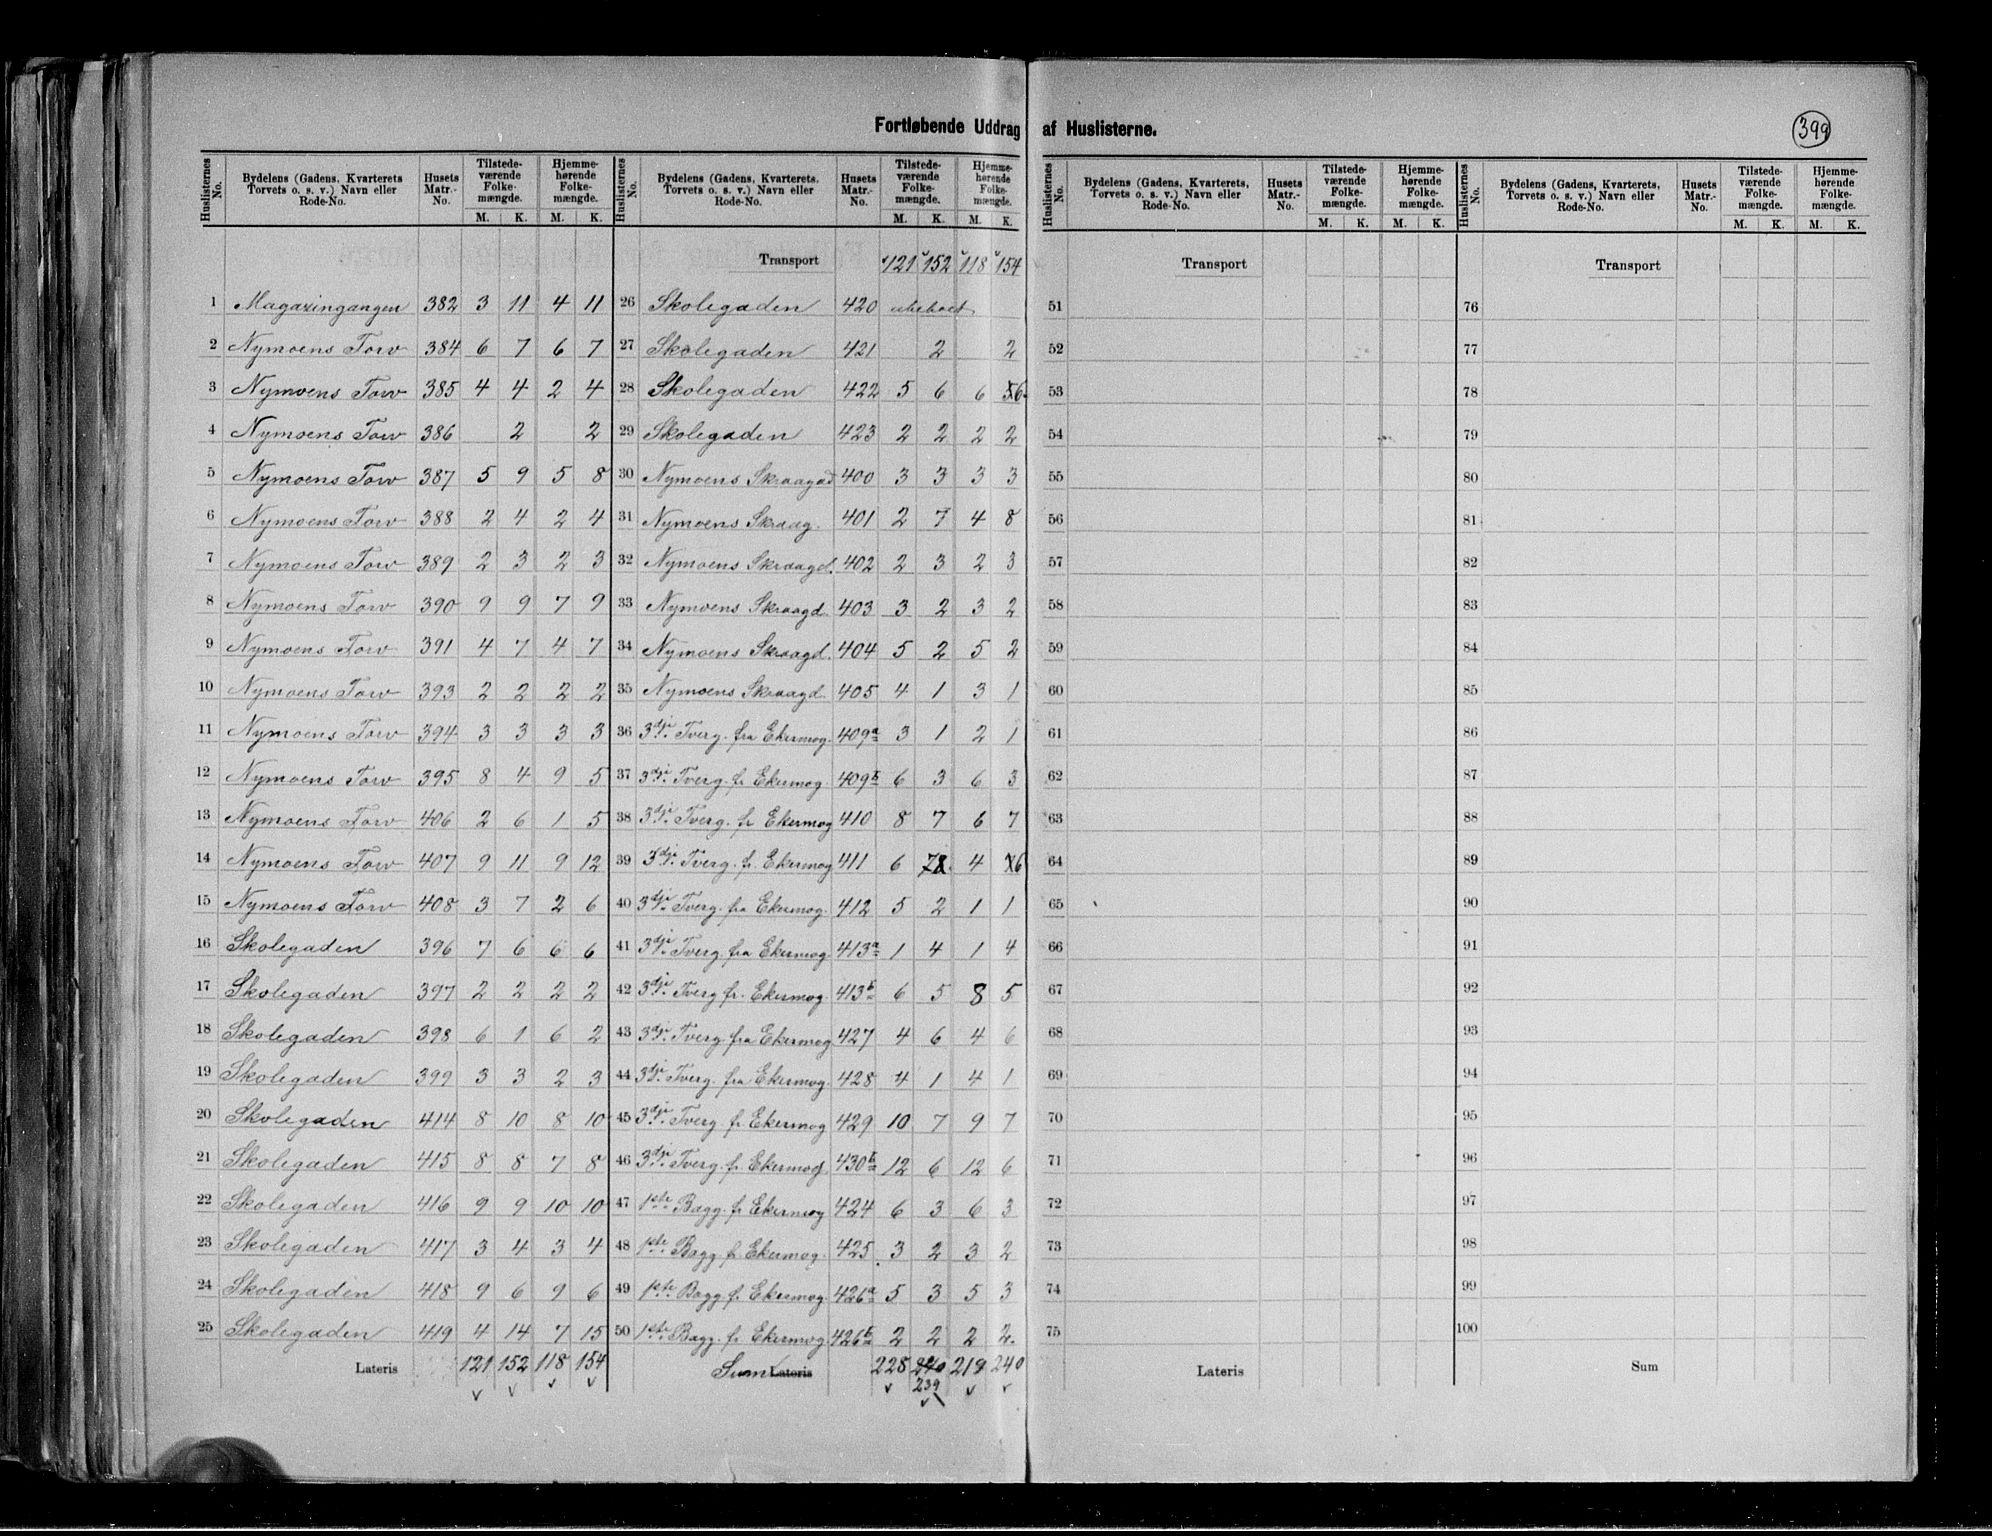 Fortløbende Uddrag af Huslisterne.
399
Huslisternes No. | Bydelens (Gadens, Kvarterets Torvets o. s. v.) Navn eller Rode-No. | Husets Matr.-No. | Tilstedeværende Folkemængde. M. K. | Hjemmehørende Folkemængde. M. K.
1 Magazingangen 382 3 11 4 11
2 Nymoens Torv 384 6 7 6 7
3 Nymoens Torv 385 4 4 2 4
4 Nymoens Torv 386 2 2
5 Nymoens Torv 387 5 9 5 8
6 Nymoens Torv 388 2 4 2 4
7 Nymoens Torv 389 2 3 2 3
8 Nymoens Torv 390 9 9 7 9
9 Nymoens Torv 391 4 7 4 7
10 Nymoens Torv 393 2 2 2 2
11 Nymoens Torv 394 3 3 3 3
12 Nymoens Torv 395 8 4 9 5
13 Nymoens Torv 406 2 6 1 5
14 Nymoens Torv 407 9 11 9 12
15 Nymoens Torv 408 3 7 2 6
16 Skolegaden 396 7 6 6 6
17 Skolegaden 397 2 2 2 2
18 Skolegaden 398 6 1 6 2
19 Skolegaden 399 3 3 2 3
20 Skolegaden 414 8 10 8 10
21 Skolegaden 415 8 8 7 8
22 Skolegaden 416 9 9 10 10
23 Skolegaden 417 3 4 3 4
24 Skolegaden 418 9 6 9 6
25 Skolegaden 419 4 14 7 15
Lateris 121 152 118 154
Huslisternes No. | Bydelens (Gadens, Kvarterets, Torvets o. s. v.) Navn eller Rode-No. | Husets Matr.-No. | Tilstedeværende Folkemængde. M. K. | Hjemmehørende Folkemængde. M. K.
Transport 121 152 118 154
26 Skolegaden 420 ubeboet
27 Skolegaden 421 2 2
28 Skolegaden 422 5 6 6 6
29 Skolegaden 423 2 2 2 2
30 Nymoens Skraagad 400 3 3 3 3
31 Nymoens Skraag. 401 2 7 4 8
32 Nymoens Skraagd. 402 2 3 2 3
33 Nymoens Skraagd. 403 3 2 3 2
34 Nymoens Skraagd. 404 5 2 5 2
35 Nymoens Skraagd 405 4 1 3 1
36 3die Tverg. fra Ekermog. 409a 3 1 2 1
37 3die Tverg. fr Ekermog. 409b 6 3 6 3
38 3die Tverg. fr Ekermog 410 8 7 6 7
39 3die Tverg. fr. Ekermog 411 6 7 4 6
40 3die Tverg. fra Ekermog. 412 5 2 1 1
41 3die Tverg. fra Ekermog. 413a 1 4 1 4
42 3die Tverg fr. Ekermog. 413b 6 5 8 5
43 3die Tverg. fra Ekermog 427 4 6 4 6
44 3die Tverg. fra Ekermog. 428 4 1 4 1
45 3die Tverg. fr. Ekermog 429 10 7 9 7
46 3die Tverg. fr. Ekermog 430b 12 6 12 6
47 1ste Bagg. fr Ekermog 424 6 3 6 3
48 1ste Bagg fr Ekermog. 425 3 2 3 2
49 1ste Bagg. fr. Ekermog. 426a 5 3 5 3
50 1ste Bagg. fr. Ekermog. 426b 2 2 2 2.
Sum Lateris 228 240 219 240
239
Huslisternes No. | Bydelens (Gadens, Kvarterets, Torvets o. s. v.) Navn eller Rode-No. | Husets Matr.-No. | Tilstedeværende Folkemængde. M. K. | Hjemmehørende Folkemængde. M. K.
Transport
51
52
53
54
55
56
57
58
59
60
61
62
63
64
65
66
67
68
69
70
71
72
73
74
75
Lateris
Huslisternes No. | Bydelens (Gadens, Kvarterets, Torvets o. s. v.) Navn eller Rode-No. | Husets Matr.-No. | Tilstedeværende Folkemængde. M. K. | Hjemmehørende Folkemængde. M. K.
Transport
76
77
78
79
80
81
82
83
84
85
86
87
88
89
90
91
92
93
94
95
96
97
98
99
100
Sum